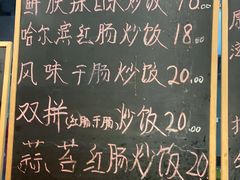 鲜族辣白菜炒饭 18.00
哈尔滨红肠炒饭 18.00
风味干肠炒饭 20.00
双拼(红肠干肠)炒饭 20.00
蒜苔红肠炒饭 20